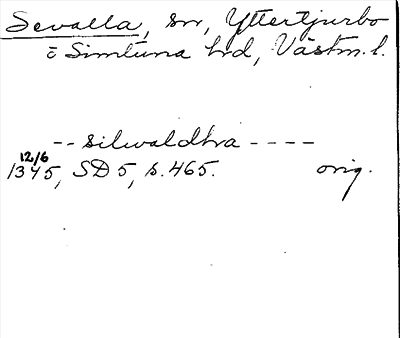 Sevalla, sn, Yttertjurbo
o Simtuna hrd, Västm. l.
-- silwaldhra ----
12/6
1345, SD 5, s. 465. orig.